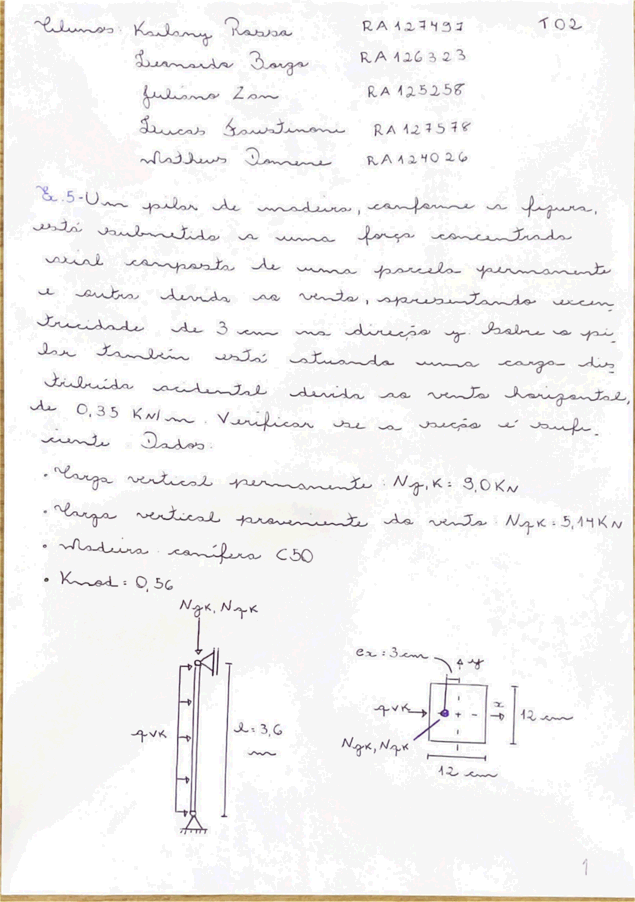 Alunos: Kailany Rossa RA127497 T02
Leonardo Borga RA126323
Juliana Zan RA125258
Lucas Faustinoni RA127578
Matheus Domene RA124026
Ex.5-Um pilar de madeira, conforme a figura,
está submetido a uma força concentrada
axial composta de uma parcela permanente
e outra devida ao vento, apresentando excen
tricidade de 3 cm na direção y. Sobre o pi-
lar também está atuando uma carga dis
tribuída acidental devida ao vento horizontal,
de 0,35 KN/m. Verificar se a seção é sufi-
ciente. Dados:
• Carga vertical permanente: Ng,K = 9,0KN
• Carga vertical proveniente do vento: NqK = 5,14KN
• Madeira conífera C50
• Kmod = 0,56
NgK, NqK
qvK
l = 3,6
m
ex = 3cm
y
qvK
x
12 cm
NgK, NqK
12 cm
1